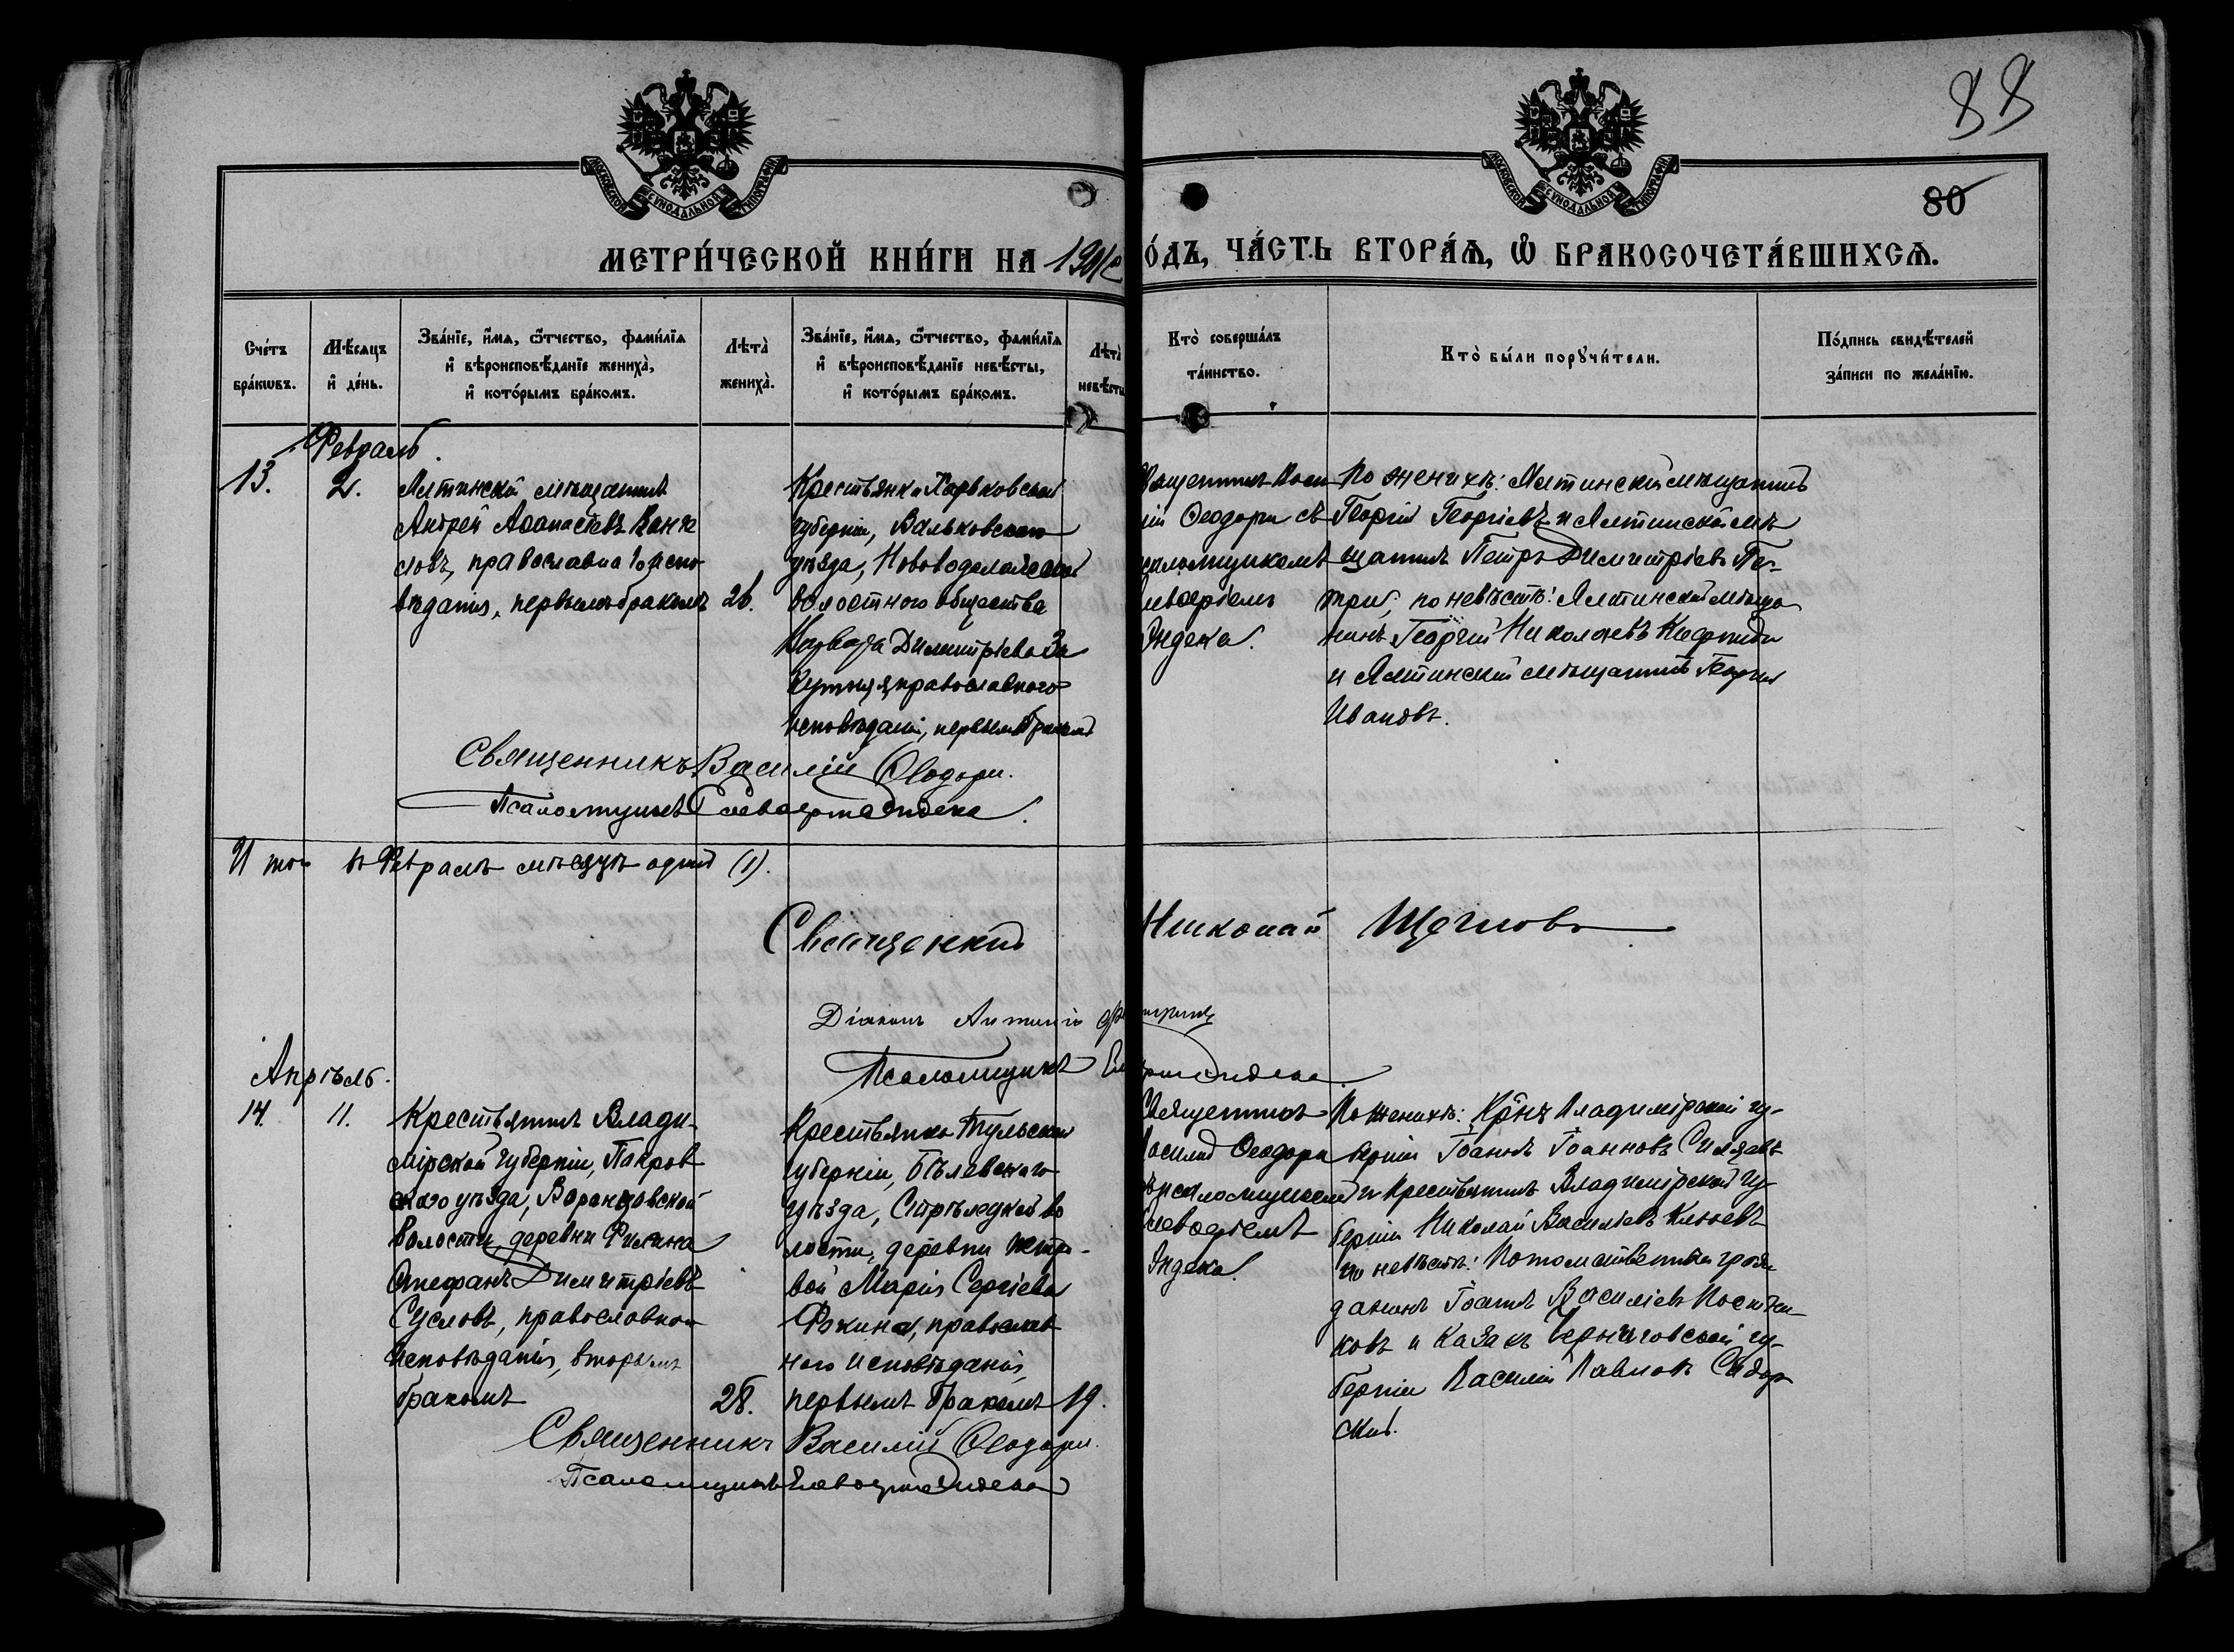 88
80
МОСКОВСКОЙ СУНОДАЛЬНОЙ ТИПОГРАФІИ
МОСКОВСКОЙ СУНОДАЛЬНОЙ ТИПОГРАФІИ
МЕТРИ́ЧЕСКОЙ КНИ́ГИ НА 191
О́ДЪ, ЧА́СТЬ ВТОРА́Ѧ, Ѽ БРАКОСОЧЕТА́ВШИХСѦ.
Сче́тъ
бра́кѡвъ.
Мѣ́сяцъ
и҆ де́нь.
Зва́нїе, и҆́мѧ, ѻ҆́тчество, фами́лїѧ
и҆ вѣроисповѣ́данїе жениха̀,
и҆ кото́рымъ бра́комъ.
Лѣта̀
жениха̀.
Зва́нїе, и҆́мѧ, ѻ҆́тчество, фами́лїѧ
и҆ вѣроисповѣ́данїе невѣ́сты,
и҆ кото́рымъ бра́комъ.
Лѣта̀
невѣ́сты
Кто̀ соверша́лъ
та́инство.
Кто̀ бы́ли порꙋчи́тели.
По́дпись свидѣ́телей
за́писи по жела́нїю.
Февраль.
13. 2.
Ялтинскій мѣщанинъ
Андрей Аѳанасіевъ
словъ, православнаго испо-
вѣданія, первымъ бракомъ 26.
Крестьянка Харьковской
губерніи, Вальковскаго
уѣзда, Нововодолажской
волостного общества
Димитріева За
православного
исповѣданія, первымъ бракомъ
Ѳеодори съ
псаломщикомъ
Елевѳеріемъ
Индека.
По женихѣ: Ялтинскій мѣщанинъ
Георгій Георгіевъ и Ялтинскій мѣ
щанинъ Петръ Димитріевъ Пе-
три, по невѣстѣ: Ялтинскій мѣща
нинъ Георгій Николаевъ
и Ялтинскій мѣщанинъ Георгій
Ивановъ.
Священникъ Василій Ѳеодори.
Псаломщикъ Елевѳерій Индека.
Итого въ Февралѣ мѣсяцѣ одинъ (1).
Священникъ Николай Щегловъ
Діаконъ Антоній
Псаломщикъ Индека
Апрѣль.
14. 11.
Крестьянинъ Влади-
мірской губерніи, Покров
скаго уѣзда, Воронцовской
волости, деревни Филина
Стефанъ Димитріевъ
Сусловъ, православнаго
исповѣданія, вторымъ
бракомъ 28.
Крестьянка Тульской
губерніи, Бѣлевскаго
уѣзда, Стрѣлецкой во
лости, деревни Петро-
вой Марія Сергіева
Фокина, православ
наго исповѣданія,
первымъ бракомъ 19.
Священникъ
Василій Ѳеодори
съ псаломщикомъ
Елевѳеріемъ
Индека.
По женихѣ: Кр-нъ Владимірской гу-
берніи Іоаннъ Іоанновъ
и крестьянинъ Владимірской гу-
берніи Николай Васильевъ Клюевъ
по невѣстѣ: Потомственный граж-
данинъ Іоаннъ Василіевъ
ковъ и казакъ Черниговской гу-
берніи Василій Павловъ Сидор
скій.
Священникъ Василій Ѳеодори.
Псаломщикъ Елевѳерій Индека